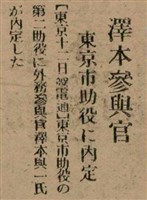 澤本參與官
東京市助役に内定
【東京十二日發電通】東京市助役の
第二助役に外務參與官澤本與一氏
が内定した